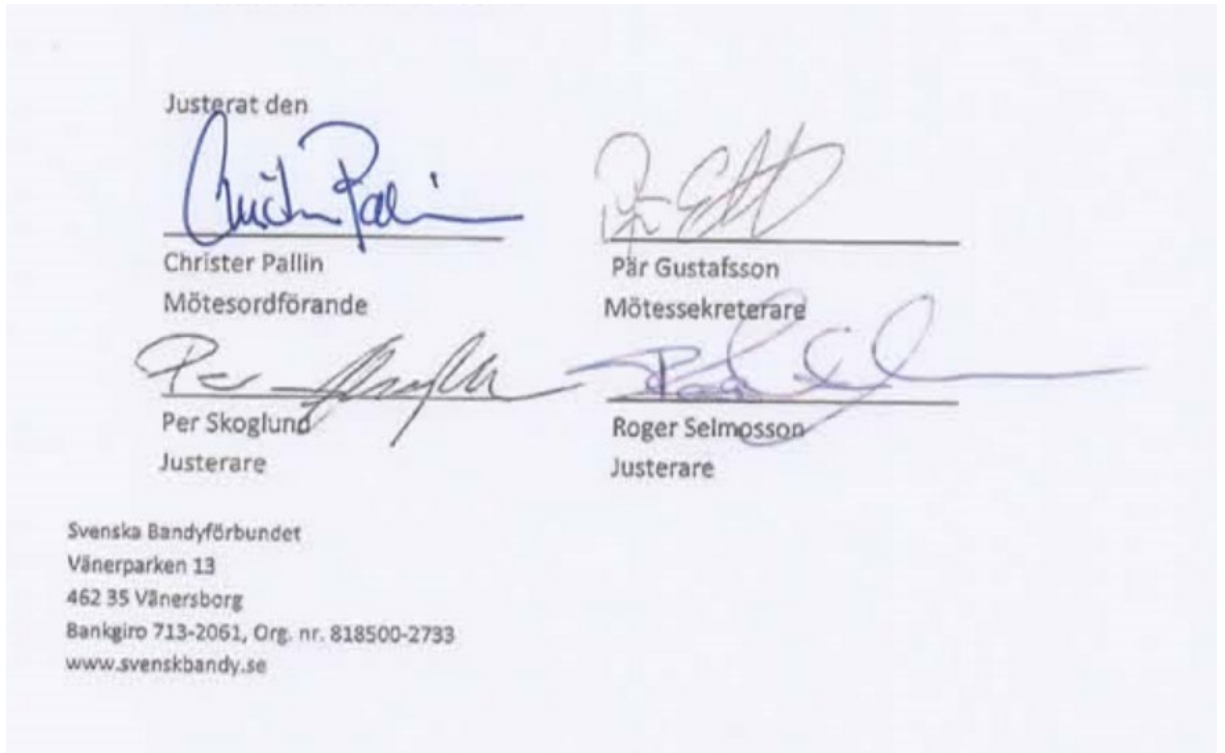 Justerat den
Christer Pallin
Mötesordförande
Pär Gustafsson
Mötessekreterare
Per Skoglund
Justerare
Roger Selmosson
Justerare
Svenska Bandyförbundet
Vänerparken 13
462 35 Vänersborg
Bankgiro 713-2061, Org. nr. 818500-2733
www.svenskbandy.se